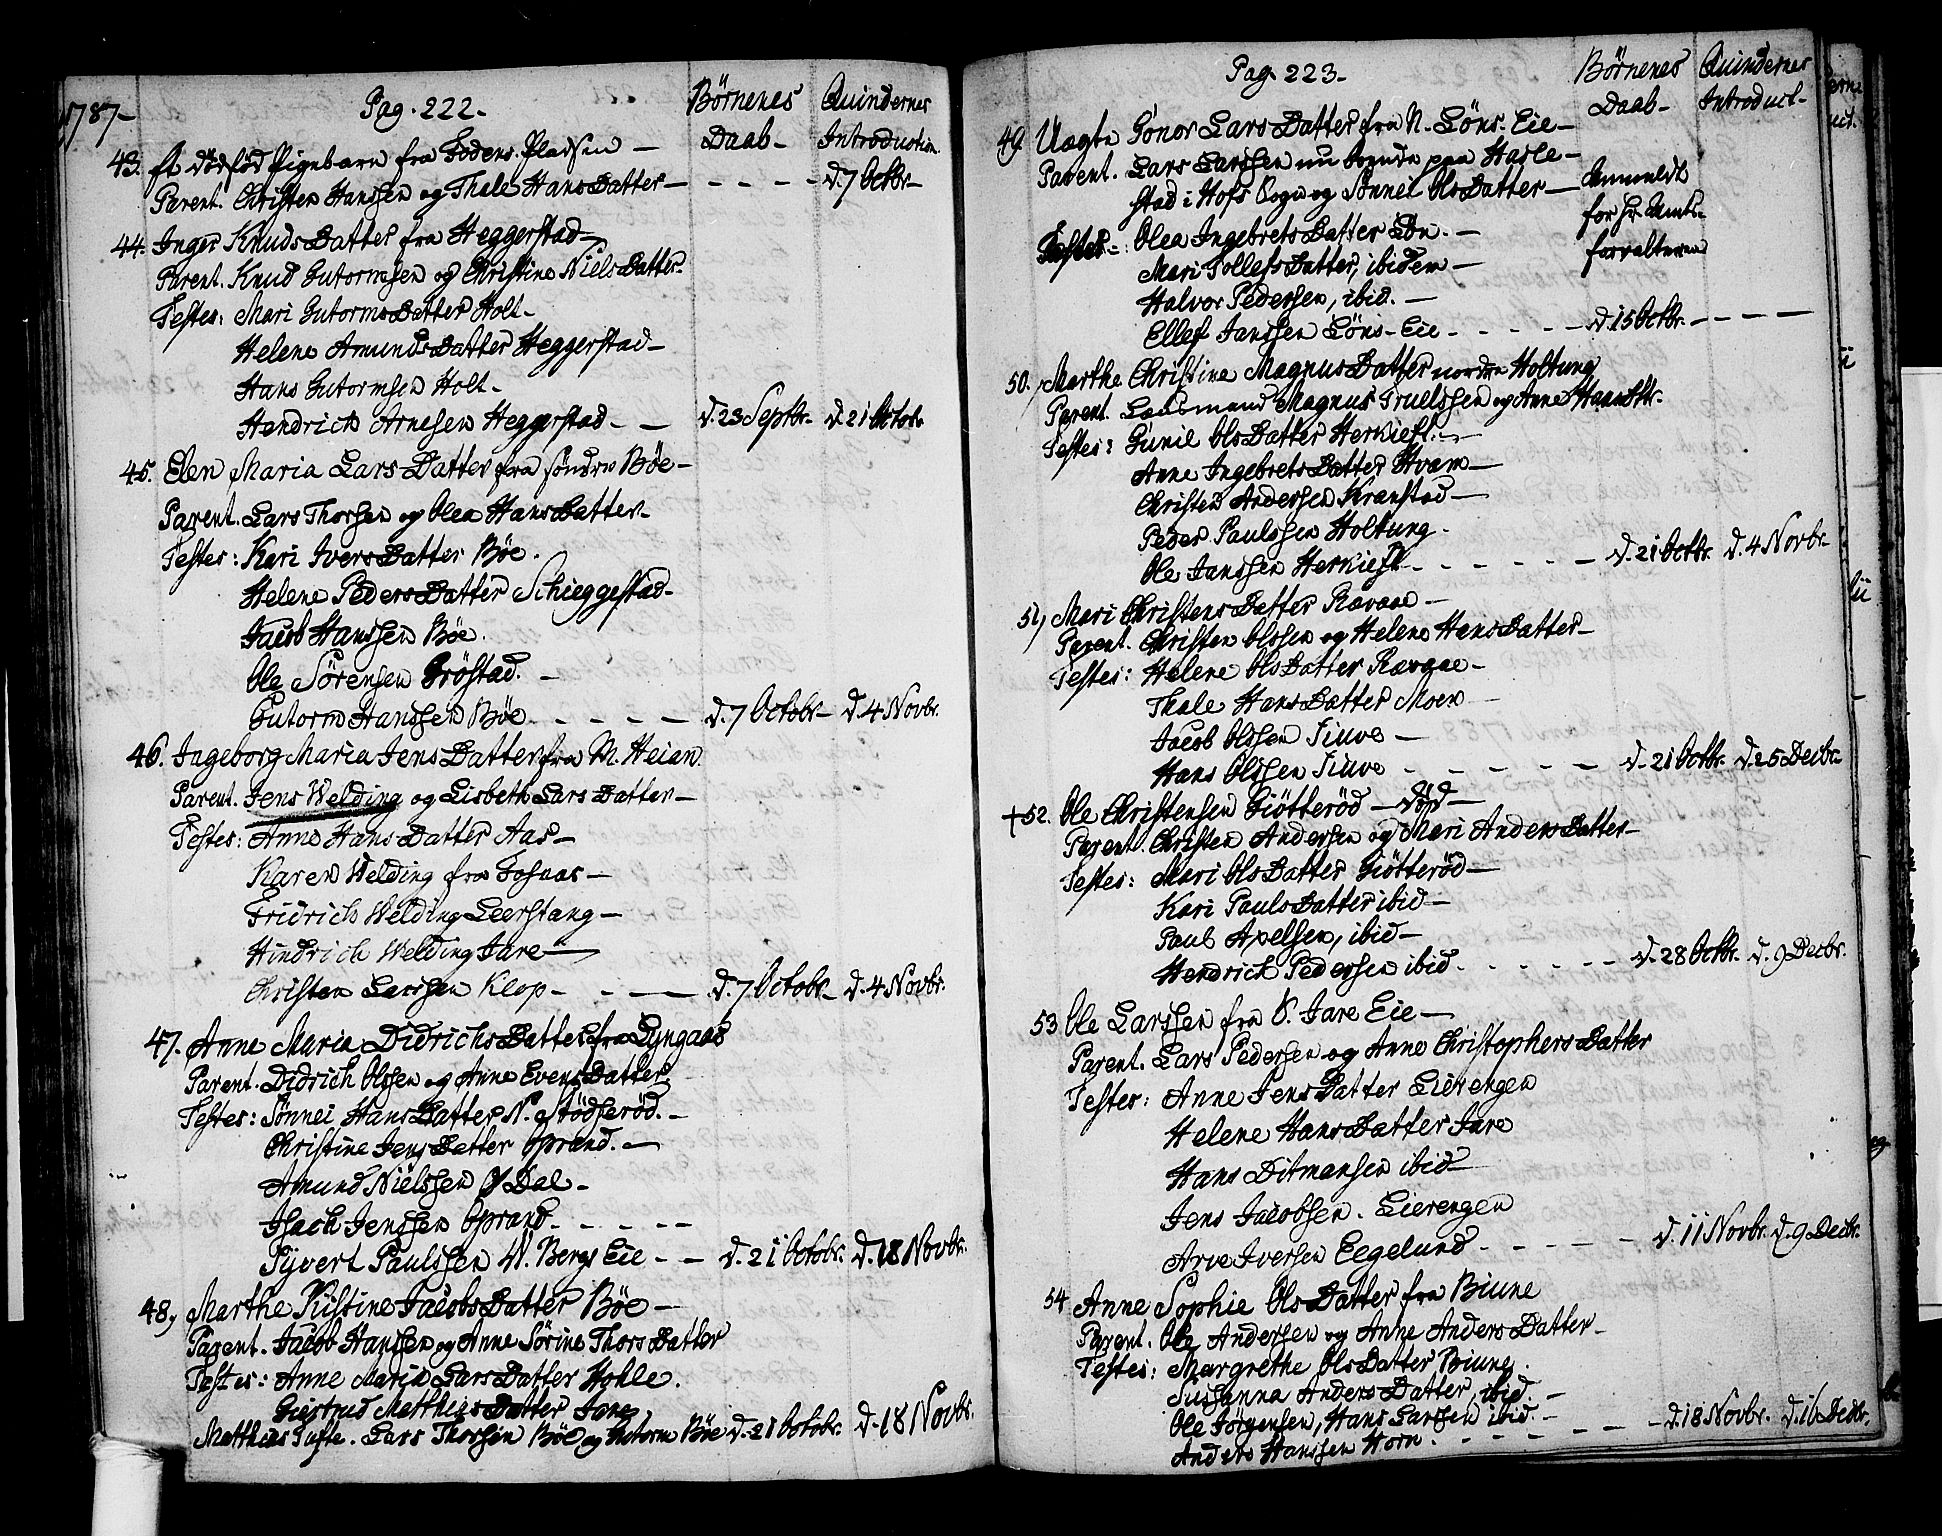 1787-
Pag. 222.
Börnenes Daab-
Quindernes Introduction.
43. et dödföd Pigebarn fra Fodens Pladsen -
Parent. Christen Hanssen og Thale HansDatter - - - - - d. 7 Octbr-
44. Inger KnudsDatter fra Heggerstad-
Parent. Knud Gutormsen og Christine NielsDatter-
Testes: Mari GutormsDatter Holt-
Helene AmundsDatter Heggerstad-
Hans Gutormsen Holt-
Hendrich Arnesen Heggerstad - - d. 23 Septbr- d. 21 Octobr
45. Elen Maria LarsDatter fra söndre Böe-
Parent. Lars Thorsen og Olea HansDatter-
Testes: Kari IversDatter Böe.
Helene PedersDatter Schieggestad-
Jacob Hanssen Böe.
Ole Sörensen Gröstad. -
Gutorm Hanssen Böe - - - - - d. 7 Octobr- d. 4 Novbr.
46. Ingeborg Maria JensDatter fra M. Heian
Parent. Jens Welding og Lisbeth LarsDatter-
Testes: Anne HansDatter Aas-
Karen Welding fra Fosnas-
Fridrich Welding Leerstang-
Hindrich Welding Jare-
Christen Larssen Klop - - - d. 7 Octobr- d. 4 Novbr.
47. Anne Maria DidrichsDatter fra Lyngaas
Parent. Didrich Olssen og Anne EvensDatter
Testes: Sönnei HansDatter N. Stödseröd. -
Christine JensDatter Oprand. -
Amund Nielssen Ø Dal-
Isach Jenssen Oprand - - - - -
Syvert Paulssen W. Bergs Eie - - d. 21 Octobr. d. 18 Novbr.
48, Marthe Kistine JacobsDatter Böe-
Parent. Jacob Hanssen og Anne Sörine ThorsDatter
Testes: Anne Maria LarsDatter Hohle.
Giertrud MatthiesDatter Jare,
Matthies Tufte. Lars Thorsen Böe og Gutorm Böe d. 21 Octobr. d. 18 Novbr.
Pag. 223-
Börnenes Daab-
Quindernes Introduct-
49. Uægte Gonor LarsDatter fra N. Löns-Eie-
Parent. Lars Larssen nu boende paa Hasle-
stad i Hofs Sogn og Sönnei OlsDatter-
Anmeldt
for Hr. Amts-
forvalteren
Testes-: Olea IngebretsDatter Lön. -
Mari TollefsDatter, ibidem -
Halvor Pedersen, ibid. -
Ellef Janssen Löns-Eie - - - - - d. 15 Octbr. - - - -
50. Marthe Christine MagnusDatter nordre Holtung
Parent. Landsmand Magnus Truelssen og Anne HansDtr.
Testes: Gunil OlsDatter Herkiest. -
Anne IngebretsDatter Hvam-
Christen Andersen Kranstad-
Peder Paulssen Holtung.
Ole Janssen Herkiest - - - - - - d. 21 Octbr. d. 4 Novbr-
51, Mari ChristensDatter Ravaae-
Parent. Christen Olssen og Helene HansDatter-
Testes: Helene OlsDatter Ravaae-
Thale HansDatter Moen
Jacob Olssen Tiuve-
Hans Olssen Tiuve - - - - - - d. 21 Octbr. d. 25 Decbr.
+52. Ole Christensen Giötteröd - död-
Parent. Christen Andersen og Mari AndersDatter-
Testes: Mari OlsDatter Giötteröd-
Kari PaulsDatter ibid-
Paul Axelsen, ibid-
Hendrich Pedersen ibid. - - - - - d. 28 Octbr. d. 9 Decbr.
53 Ole Larssen fra V. Jare Eie-
Parent. Lars Pedersen og Anne ChristophersDatter
Testes: Anne JensDatter Lierengen
Helene HansDatter Jare
Hans Ditmansen ibid
Jens Jacobsen. Lierengen
Arve Iversen Eegelund - - - - - d. 11 Novbr. d. 9 Decbr.
54 Anne Sophie OlsDatter fra Biune
Parent. Ole Andersen og Anne AndersDatter-
Testes: Margrethe OlsDatter Biune.
Susanna AndersDatter, ibid. -
Ole Jörgensen, Hans Larssen ibid. -
Anders Hanssen Horn. - - - - - d. 18 Novbr. d. 16 Decbr.